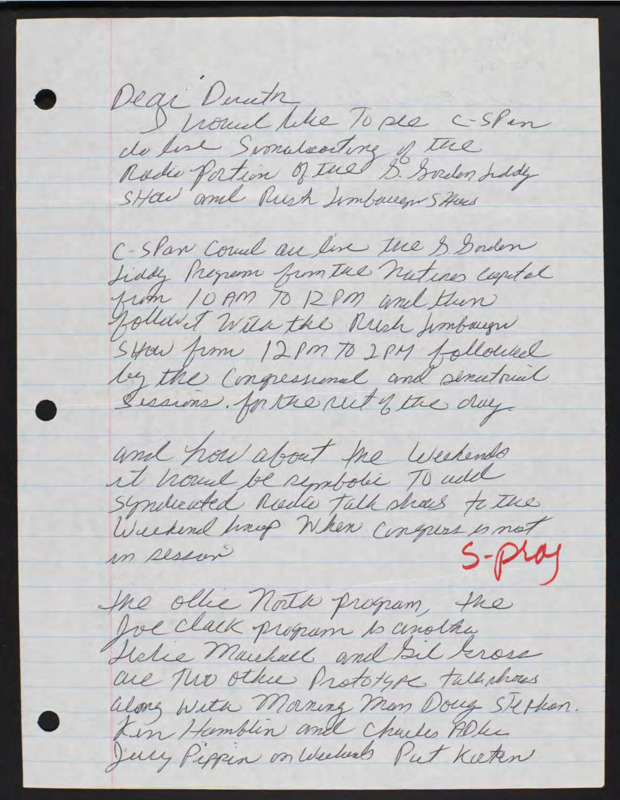 Dear Director
I would like To see C-SPan
do live Simulcasting of the
Radio Portion of the G. Gordon Liddy
SHOW and Rush Limbaugh Shows
C-SPan Could air live the G Gordon
Liddy Program from the Nations Capital
from 10 AM TO 12 PM and then
follow it With the Rush Limbaugh
SHOW from 12 PM TO 2 PM followed
by the Congressional and senatorial
Sessions. for the rest of the day
and how about the Weekends
it would be symbolic TO add
Syndicated Radio talk shows to the
Weekend lineup When Congress is not
in session
S-prog
the ollie North program, the
Joe Clark program is another
Leslie Marshall and Gil Gross
are Two other Prototype talk shows
along With Morning Man Doug STephan.
Ken Hamblin and Charles ADler
Jerry Pippin on Weekends Pat